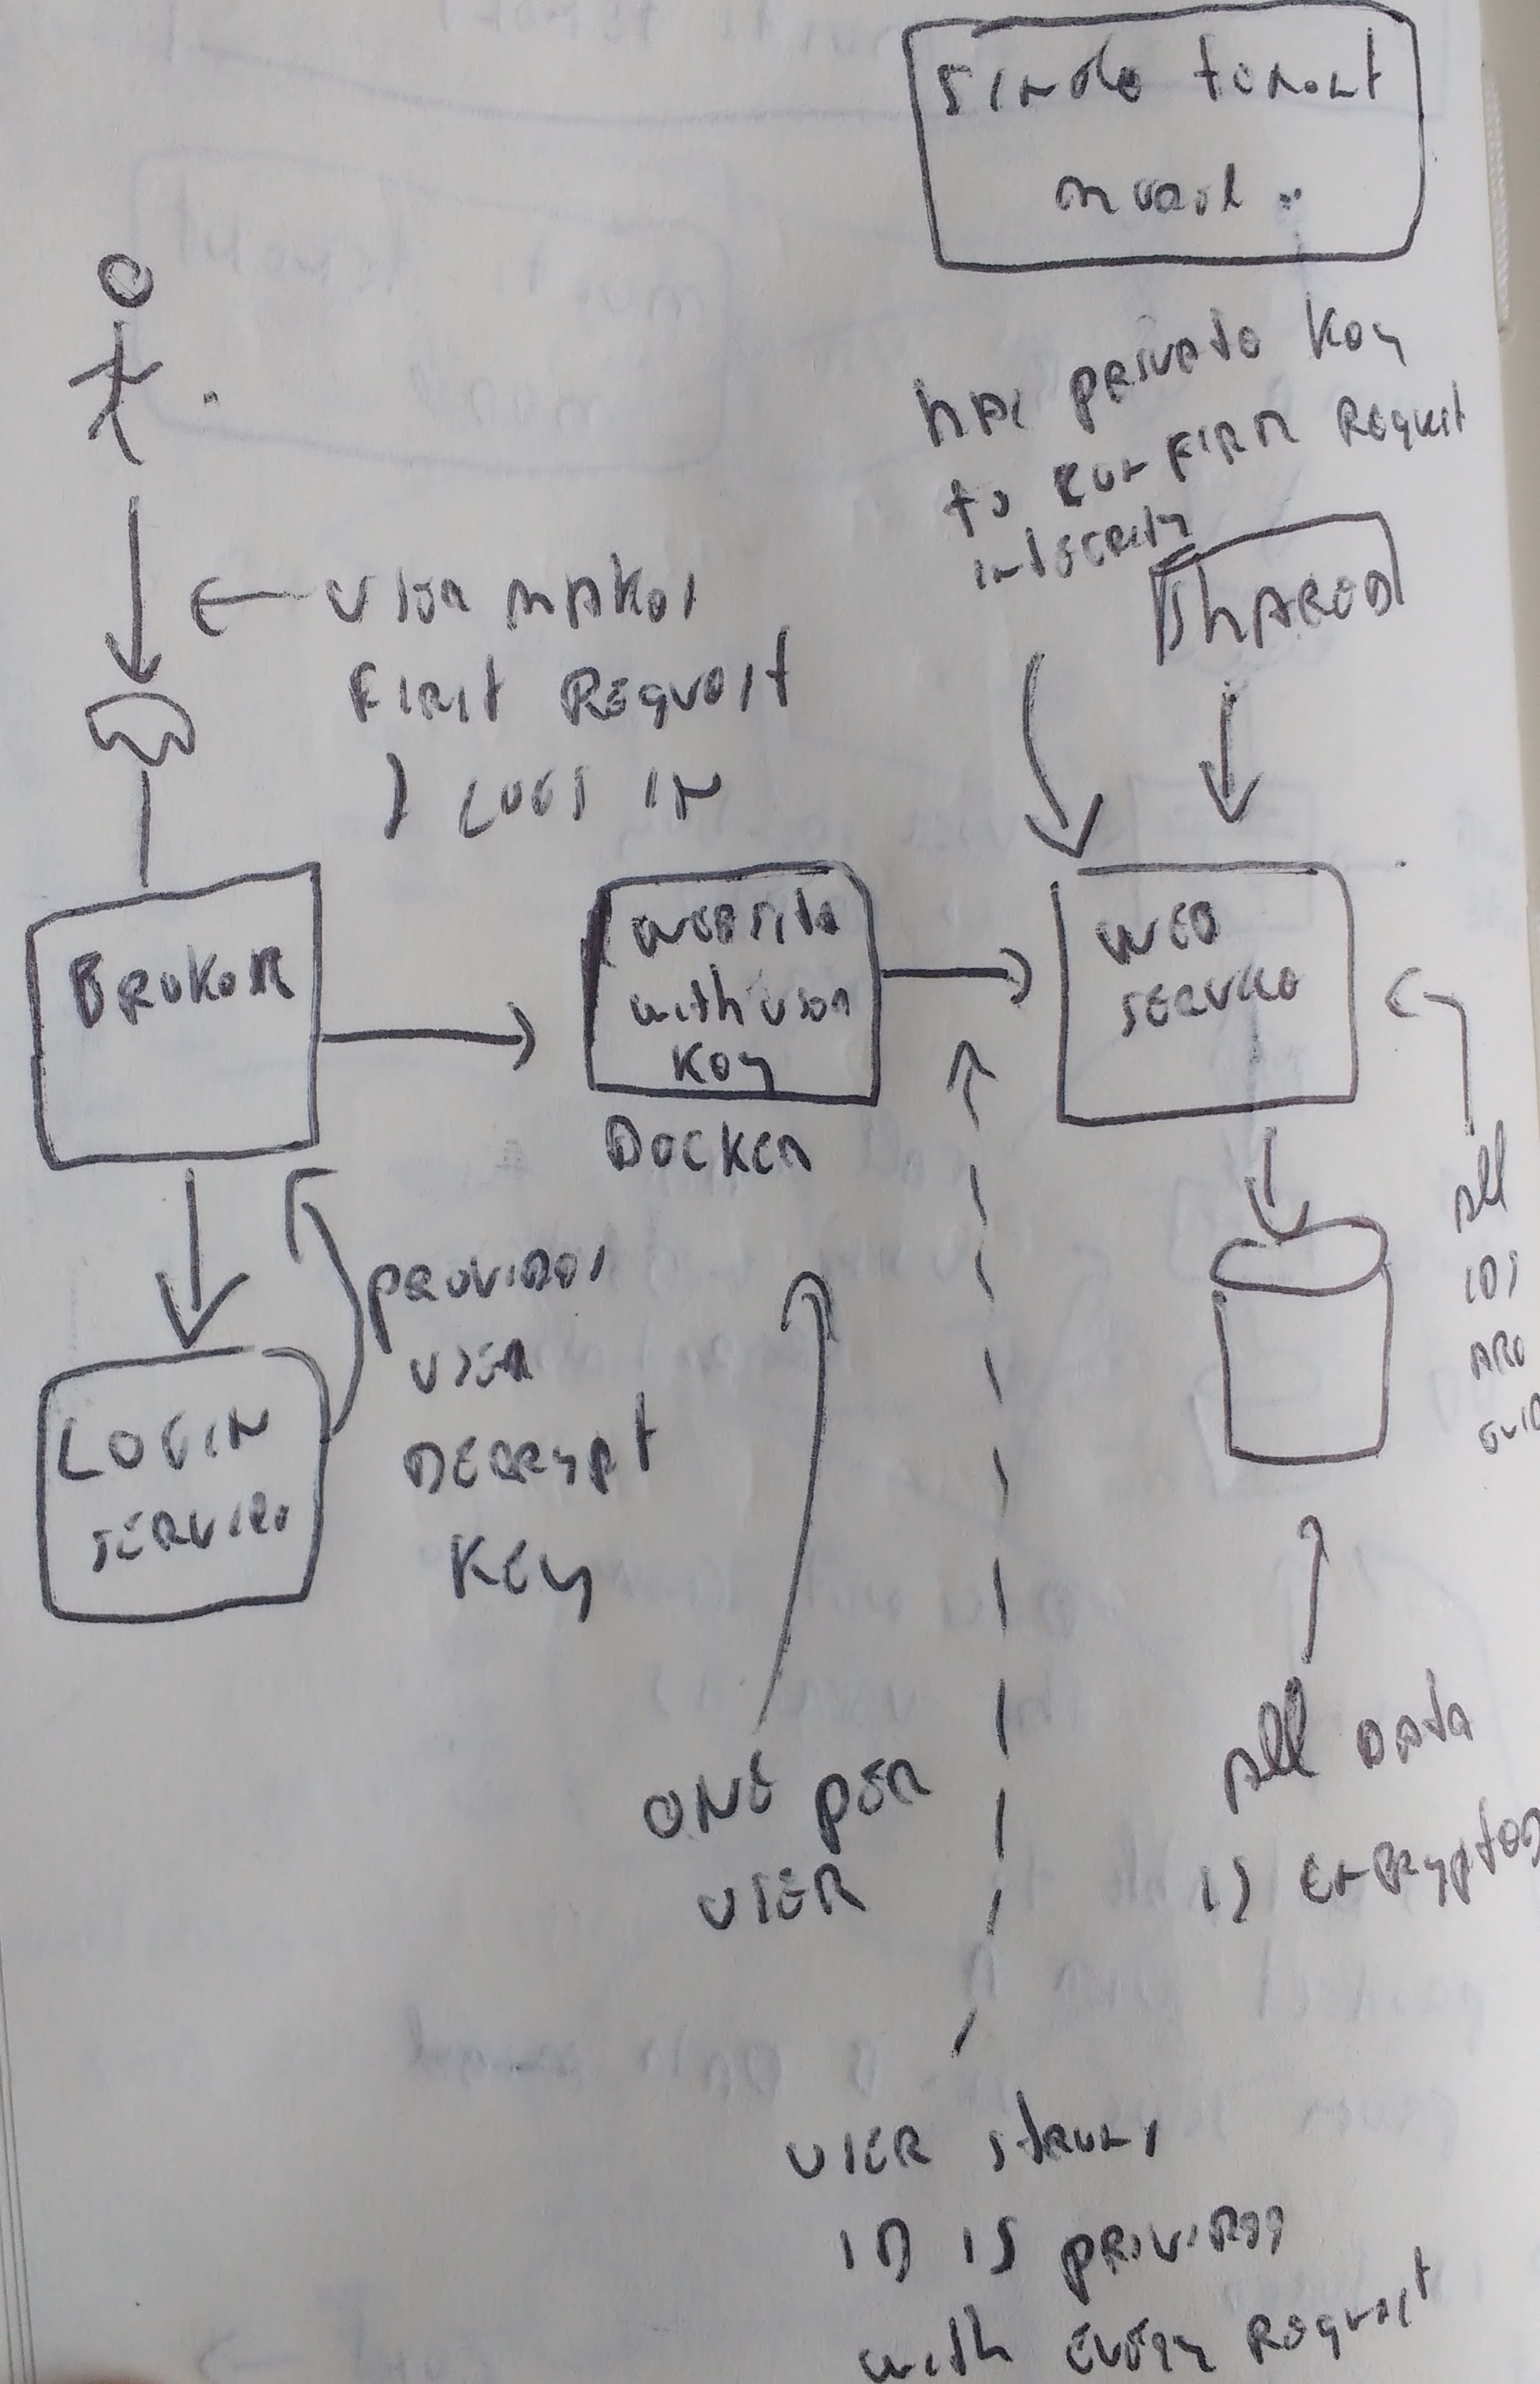 Single tenant
model
has private key
to confirm request
integrity
Shared
User makes
first request
& logs in
Broker
Website
with user
key
Docker
Web
service
All
IDs
are
GUID
Provides
user
decrypt
key
Login
service
One per
user
All data
is encrypted
User
ID is provided
with every request